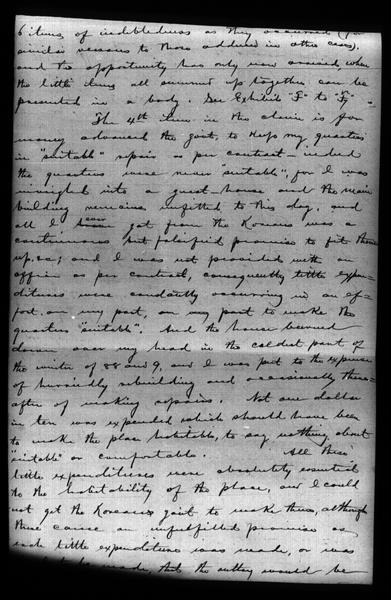 6 items, of indebtedness as they occurred (for
similar reasons to those adduced in other cases),
and the opportunity has only now arrived, when
the little items all summed up together can be
presented in a body. See Exhibits "F" to "F
The 4th Item in the claim is for
money advanced the govt, to keep my quarters
in "suitable" repair as per contract - indeed
the quarters were never "suitable", for I was
inveigled into a guest-house and the main
building remains unfitted to this day, and
all I ever got from the Koreans was a
continuous but falsified promises to fit them
up, &c; and I was not provided with an
office as per contract, consequently little expen=
ditures were constantly occurring in an ef=
fort, on my part, on my part to make the
quarters "suitable". And the house burned
down over my head in the coldest part of
the winter of 88 and 9, and I was put to the expense
of hurriedly rebuilding and occasionally there=
after of making repairs. Not one dollar
in ten was expended which should have been
to make the place habitable, to say nothing about
"suitable" or comfortable. All these
little expenditures were absolutely essential
to the habitability of the place, and I could
not get the Korean govt to make them, although
there came an unfulfilled promise as
each little expenditure was made, or was
to be made, that the outlay would be